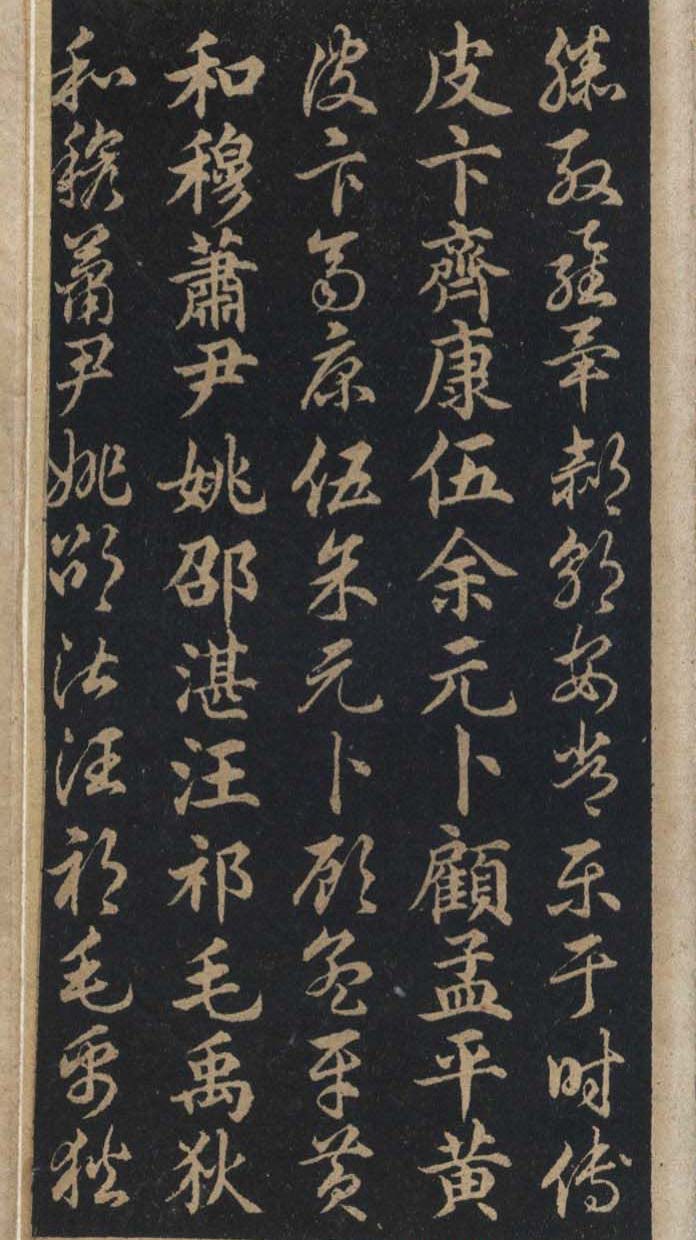 滕殷羅畢郝鄔安常樂于時傅
皮卞齊康伍余元卜顧孟平黄
皮卞齊康伍余元卜顧孟平黄
和穆蕭尹姚邵湛汪祁毛禹狄
和穆蕭尹姚邵湛汪祁毛禹狄